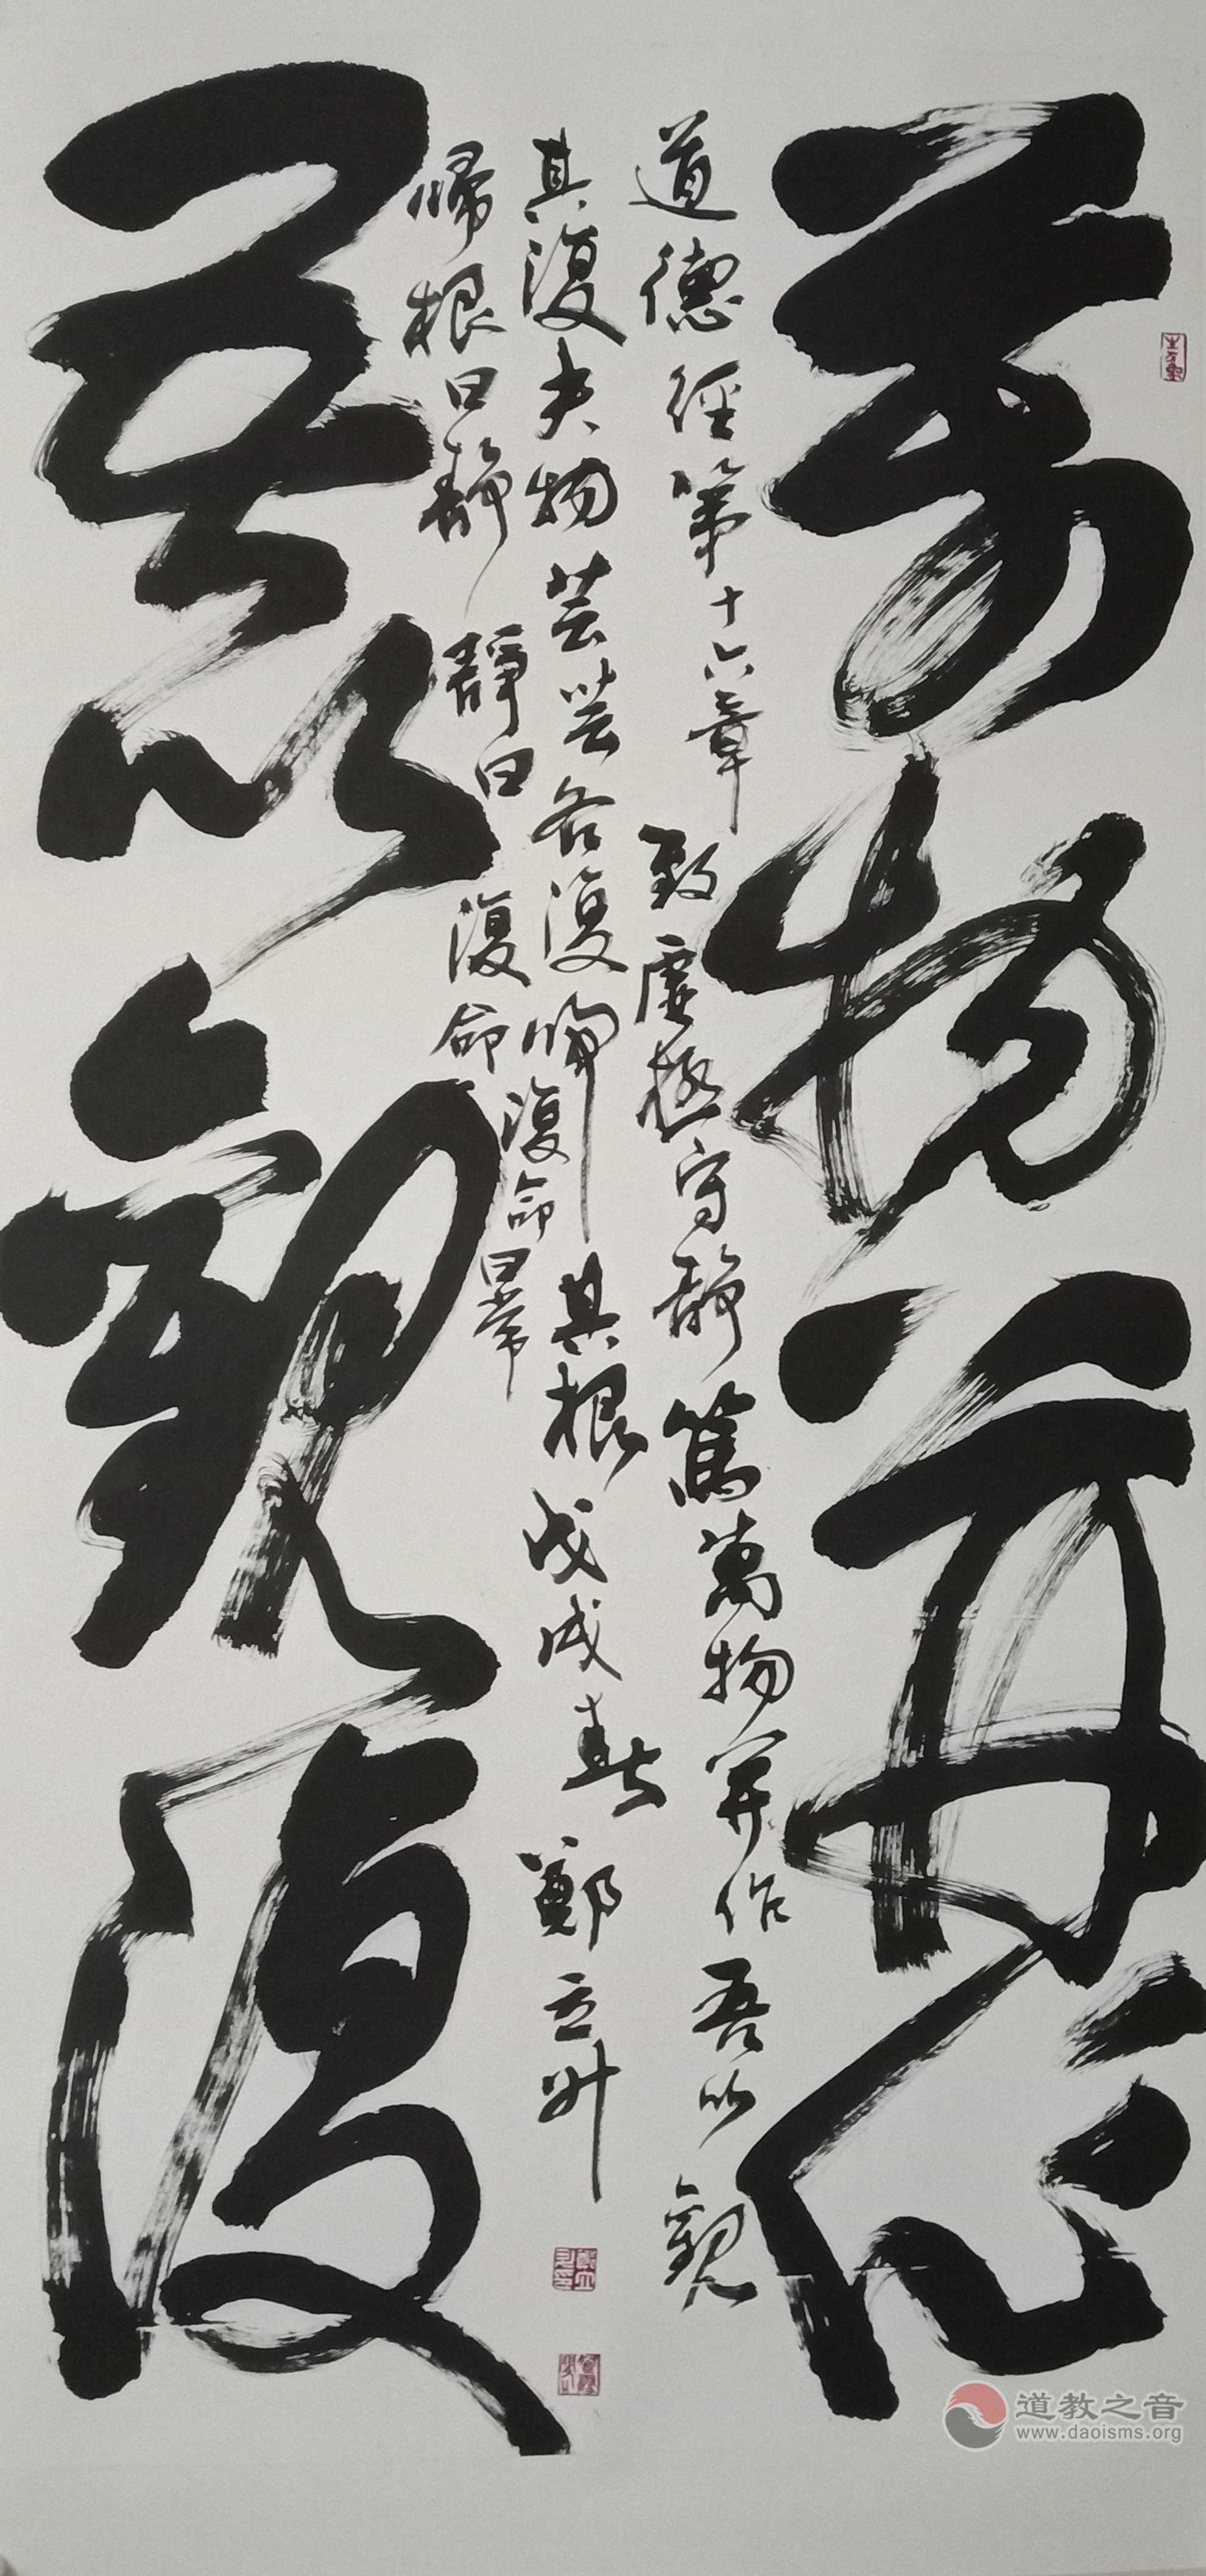 萬物並作
道德經第十六章 致虛極守靜篤萬物并作吾以觀
其復夫物芸芸各復歸其根 戊戌春 鄭立升
歸根曰靜靜曰復命復命曰常
吾以觀復
道教之音
www.daoisms.org